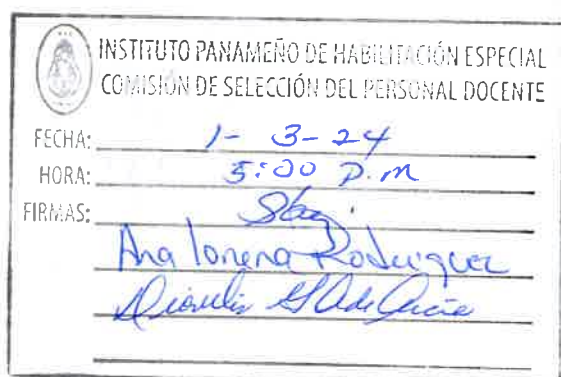 INSTITUTO PANAMEÑO DE HABILITACIÓN ESPECIAL
COMISIÓN DE SELECCIÓN DEL PERSONAL DOCENTE
FECHA: 1-3-24
HORA: 5:00 P.m
FIRMAS:
Ana lorena Rodriguez